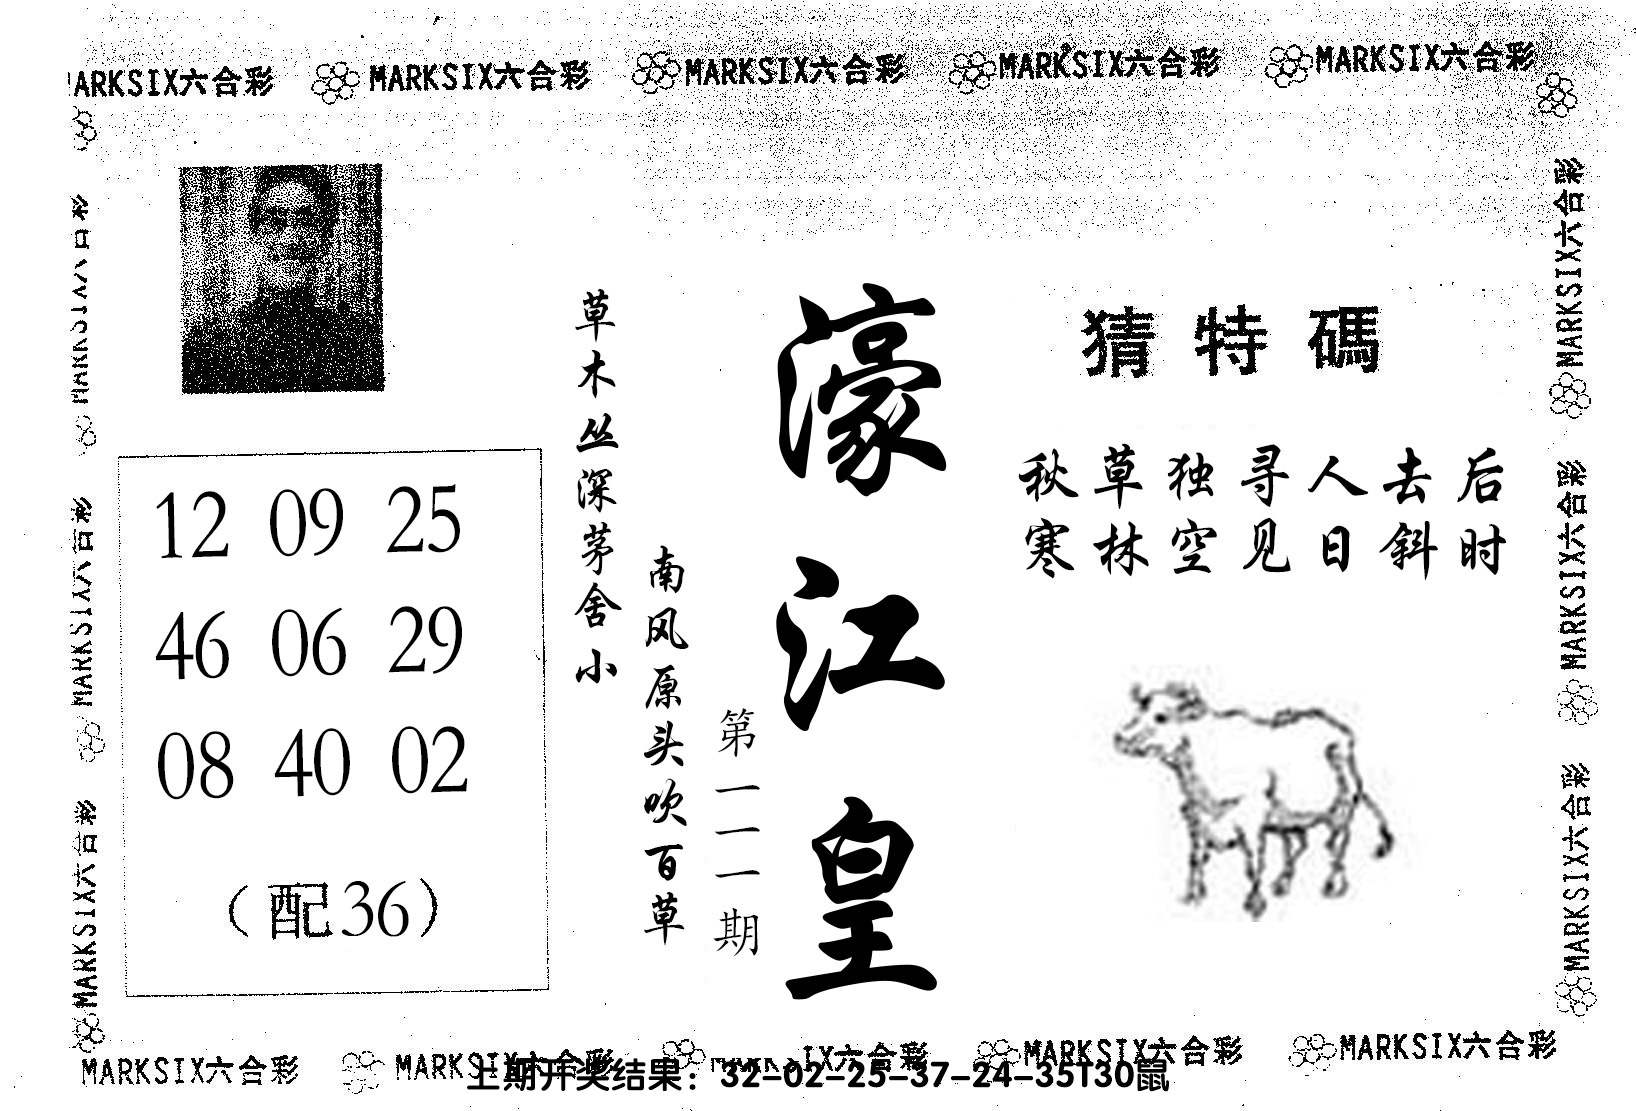 MARKSIX六合彩 MARKSIX六合彩 MARKSIX六合彩 MARKSIX六合彩
猜特碼
秋草独寻人去后
寒林空见日斜时
濠江皇
第一一一期
南风原头吹百草
草木丛深茅舍小
12 09 25
46 06 29
08 40 02
（配36）
MARKSIX六合彩
MARKSIX六合彩
MARKSIX六合彩
MARKSIX六合彩
MARKSIX六合彩
MARKSIX六合彩 MARKSIX六合彩 MARKSIX六合彩 MARKSIX六合彩
上期开奖结果：32-02-25-37-24-35T30鼠